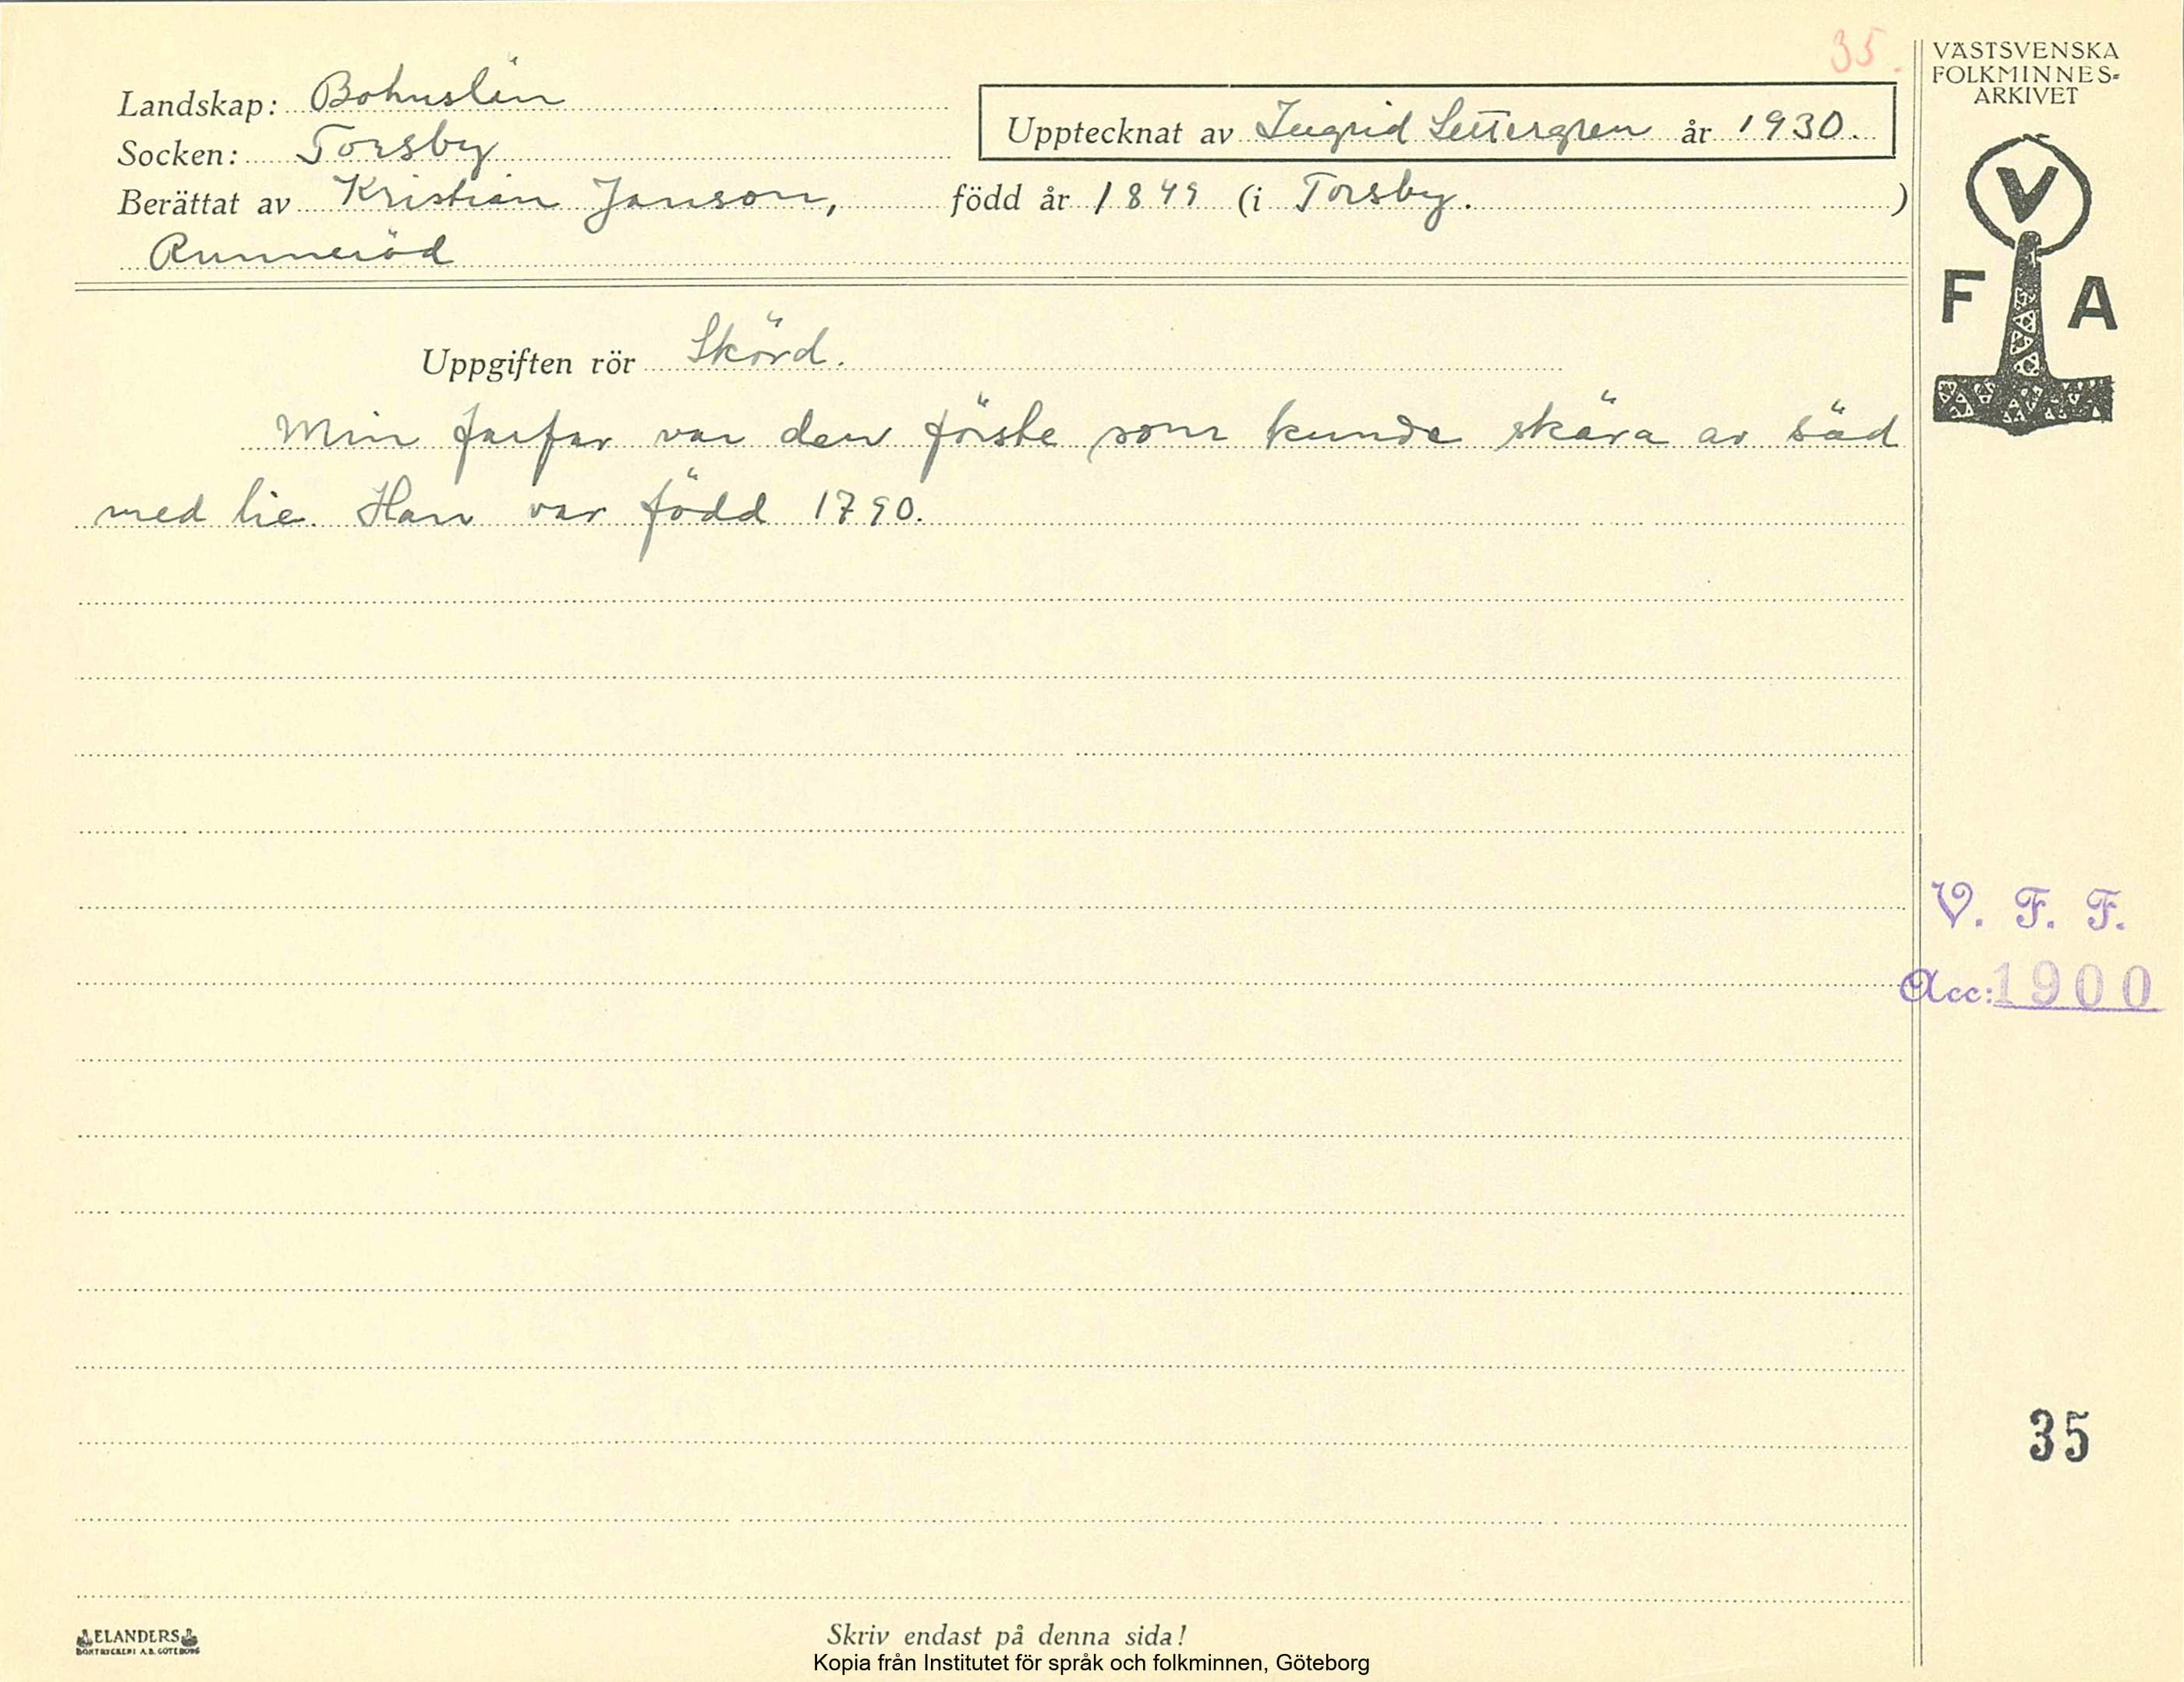 35.
Landskap: Bohuslän
Socken: Torsby
Upptecknat av Ingrid Settergren år 1930.
Berättat av Kristian Janson, född år 1849 (i Torsby. )
Runneröd
Uppgiften rör Skörd.
Min farfar var den förste som kunde skära av säd
med lie. Han var född 1790.
VÄSTSVENSKA
FOLKMINNES-
ARKIVET
V
F A
V. F. F.
Acc: 1900
35
ELANDERS
BOKTRYCKERI A.B. GÖTEBORG
Skriv endast på denna sida!
Kopia från Institutet för språk och folkminnen, Göteborg